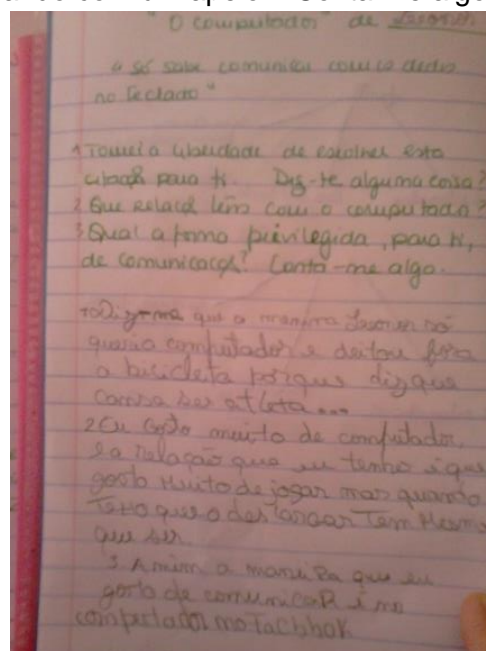 "O computador" de
"só sabe comunicar com os dedos
no teclado"
1 Tomei a liberdade de escolher esta
citação para ti. Diz-te alguma coisa?
2 Que relação tens com o computador?
3 Qual a forma privilegiada, para ti,
de comunicação? Conta-me algo.
que o menino só
queria computador e deitou fora
a bicicleta porque diz que
cansa ser atleta...
2 Eu gosto muito de computador,
e a relação que eu tenho é que
gosto muito de jogar mas quando
Tenho que o des Tem Mesmo
que ser.
3. A mim a maneira que eu
gosto de comunicar é no
computador no facbhok